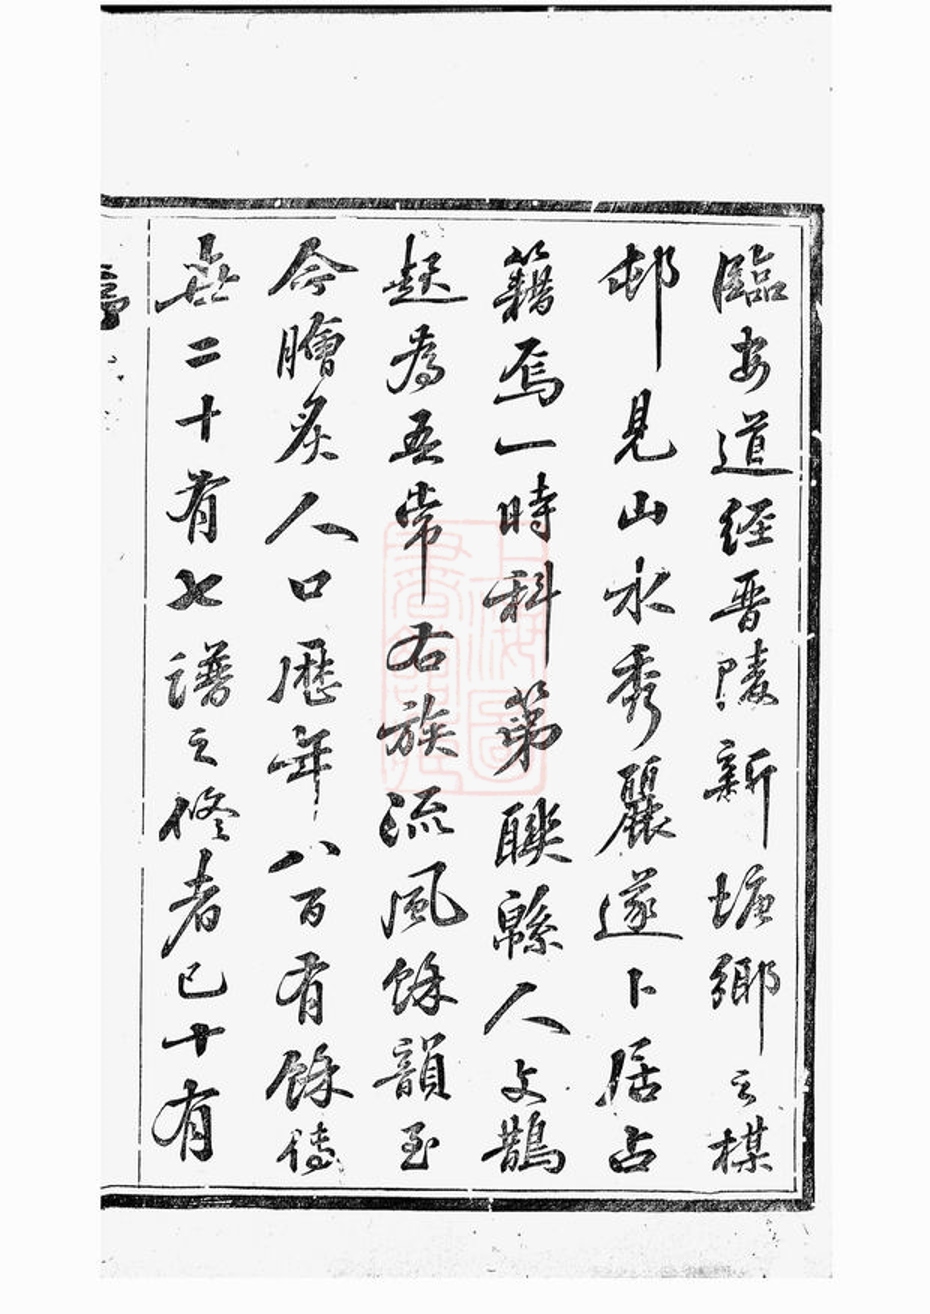 臨安道經晋陵新塘鄉之楳
邨見山水秀麗遂卜居占
籍焉一時科第聯緜人文鵲
起為吾常右族流風餘韻至
今膾炙人口歴年八百有餘傳
世二十有七譜之修者已十有
上海圖
書館藏